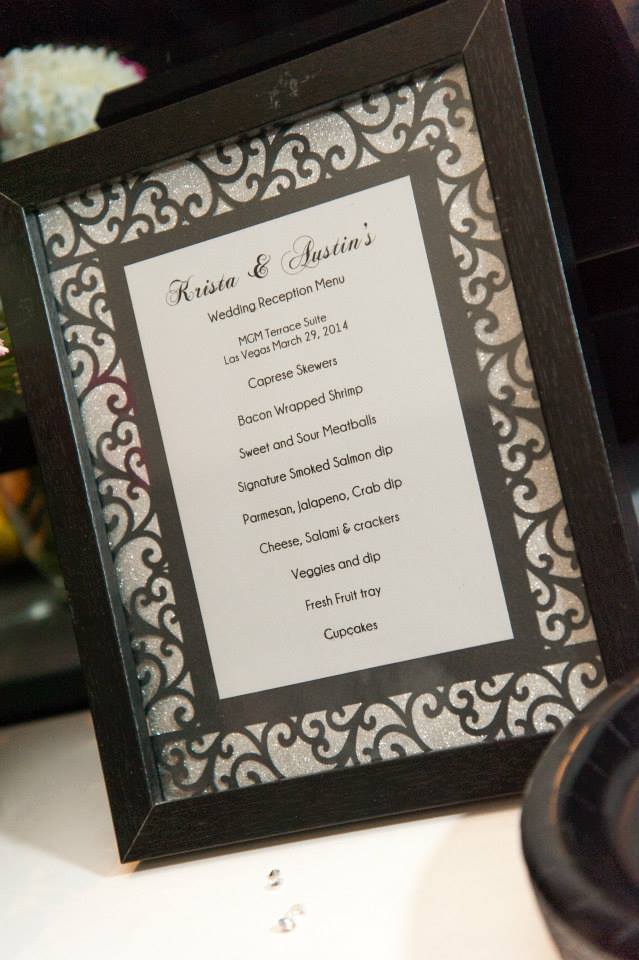 Krista & Austin's
Wedding Reception Menu
MGM Terrace Suite
Las Vegas March 29, 2014
Caprese Skewers
Bacon Wrapped Shrimp
Sweet and Sour Meatballs
Signature Smoked Salmon dip
Parmesan, Jalapeno, Crab dip
Cheese, Salami & crackers
Veggies and dip
Fresh Fruit tray
Cupcakes